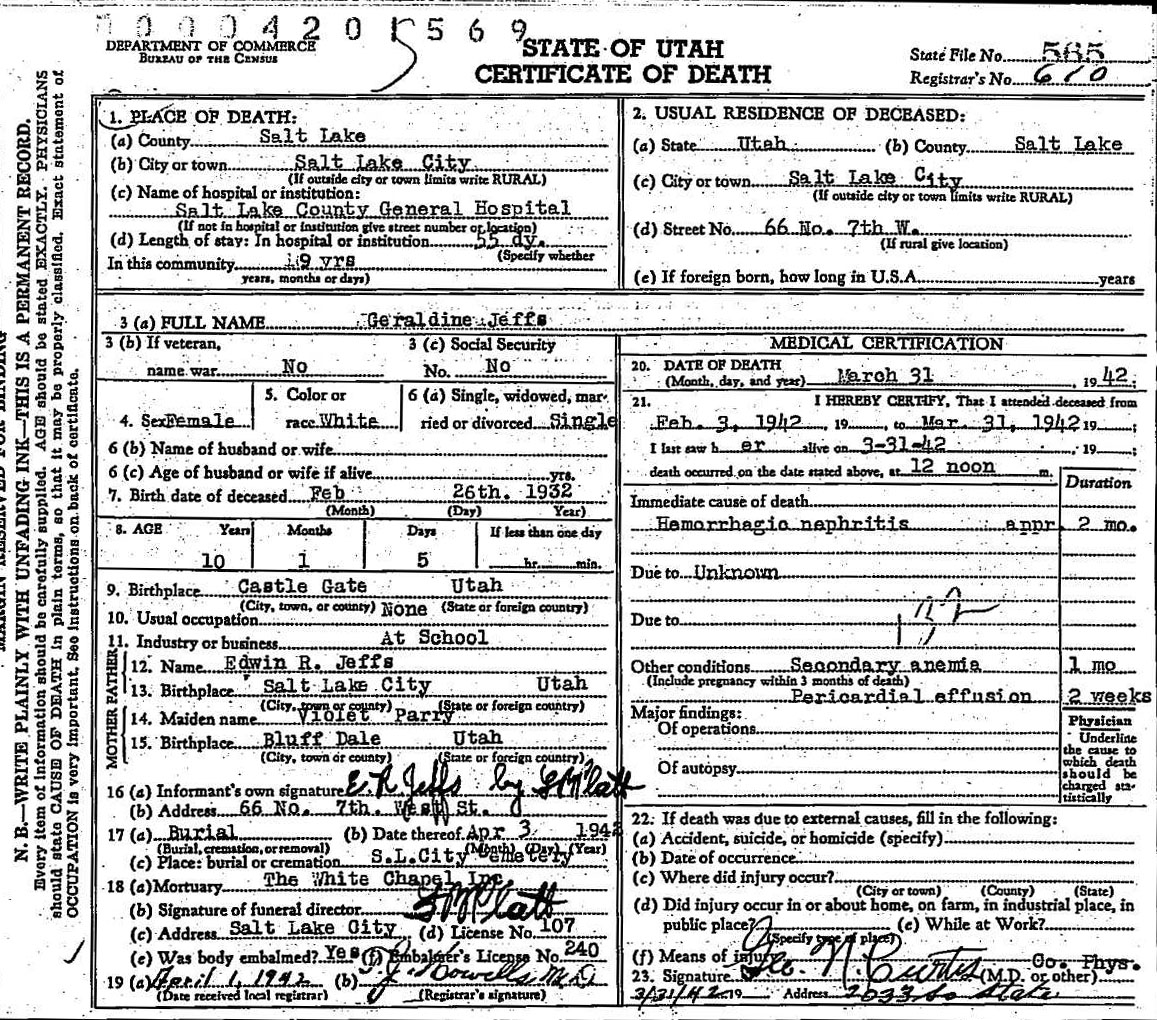 0000420 5569
DEPARTMENT OF COMMERCE
BUREAU OF THE CENSUS
STATE OF UTAH
CERTIFICATE OF DEATH
State File No. 565
Registrar's No. 610
MARGIN RESERVED FOR BINDING
N. B.—WRITE PLAINLY WITH UNFADING INK—THIS IS A PERMANENT RECORD.
Every item of information should be carefully supplied. AGE should be stated EXACTLY. PHYSICIANS
should state CAUSE OF DEATH in plain terms, so that it may be properly classified. Exact statement of
OCCUPATION is very important. See instructions on back of certificate.
1. PLACE OF DEATH:
(a) County Salt Lake
(b) City or town Salt Lake City
(If outside city or town limits write RURAL)
(c) Name of hospital or institution:
Salt Lake County General Hospital
(If not in hospital or institution give street number or location)
(d) Length of stay: In hospital or institution 55 dy.
(Specify whether
In this community 9 yrs
years, months or days)
2. USUAL RESIDENCE OF DECEASED:
(a) State Utah (b) County Salt Lake
(c) City or town Salt Lake City
(If outside city or town limits write RURAL)
(d) Street No. 66 No. 7th W.
(If rural give location)
(e) If foreign born, how long in U.S.A. years
3 (a) FULL NAME Geraldine Jeffs
3 (b) If veteran, 3 (c) Social Security
name war No No. No
5. Color or 6 (a) Single, widowed, mar-
4. Sex Female race White ried or divorced Single
6 (b) Name of husband or wife
6 (c) Age of husband or wife if alive yrs.
7. Birth date of deceased Feb 26th. 1932
(Month) (Day) Year)
8. AGE Years Months Days If less than one day
10 1 5 hr. min.
9. Birthplace Castle Gate Utah
(City, town, or county) (State or foreign country)
10. Usual occupation None
11. Industry or business At School
FATHER
12. Name Edwin R. Jeffs
13. Birthplace Salt Lake City Utah
(City, town or county) (State or foreign country)
MOTHER
14. Maiden name Violet Parry
15. Birthplace Bluff Dale Utah
(City, town or county) (State or foreign country)
16 (a) Informant's own signature E. R. Jeffs by Platt
(b) Address 66 No. 7th. West St.
17 (a) Burial (b) Date thereof Apr 3 1942
(Burial, cremation, or removal) (Month) (Day) (Year)
(c) Place: burial or cremation S.L.City Cemetery
18 (a) Mortuary The White Chapel Inc
(b) Signature of funeral director Platt
(c) Address Salt Lake City (d) License No. 107
(e) Was body embalmed? Yes (f) Embalmer's License No. 240
19 (a) April 1, 1942 (b) J. Howells M.D.
(Date received local registrar) (Registrar's signature)
MEDICAL CERTIFICATION
20. DATE OF DEATH
(Month, day, and year) March 31, 1942;
21. I HEREBY CERTIFY, That I attended deceased from
Feb. 3, 1942, 19 , to Mar. 31, 1942 19 ;
I last saw h er alive on 3-31-42 , 19 ;
death occurred on the date stated above, at 12 noon m.
Duration
Immediate cause of death
Hemorrhagic nephritis appr. 2 mo.
Due to Unknown
Due to
Other conditions Secondary anemia 1 mo
(Include pregnancy within 3 months of death)
Pericardial effusion 2 weeks
Major findings:
Of operations
Of autopsy
Physician
Underline
the cause to
which death
should be
charged sta-
tistically
22. If death was due to external causes, fill in the following:
(a) Accident, suicide, or homicide (specify)
(b) Date of occurrence
(c) Where did injury occur?
(City or town) (County) (State)
(d) Did injury occur in or about home, on farm, in industrial place, in
public place? (e) While at Work?
(Specify type of place)
(f) Means of injury
23. Signature Geo. N. Curtis Co. Phys. (M.D. or other)
3/31/42 19 Address 2033 So State